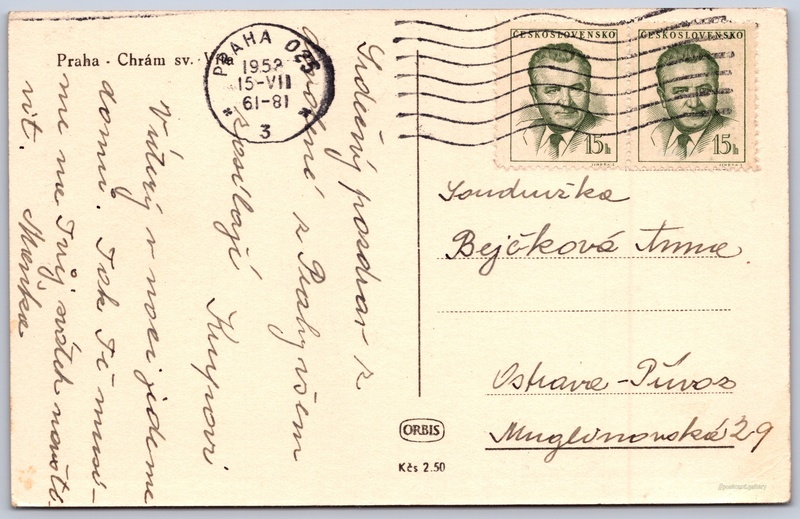 Praha - Chrám sv. Víta
PRAHA 025
1953
15-VII
61-81
3
ČESKOSLOVENSKO
15h
ČESKOSLOVENSKO
15h
Srdečný pozdrav z
z Prahy všem
posílají Knypovi
V úterý v noci jedeme
domů. Tak Tě musí-
me na Tvůj svátek navští-
vit.
Mařka
Soudružka
Bejčková Anna
Ostrava-Přívoz
Muglinovská 29
ORBIS
Kčs 2.50